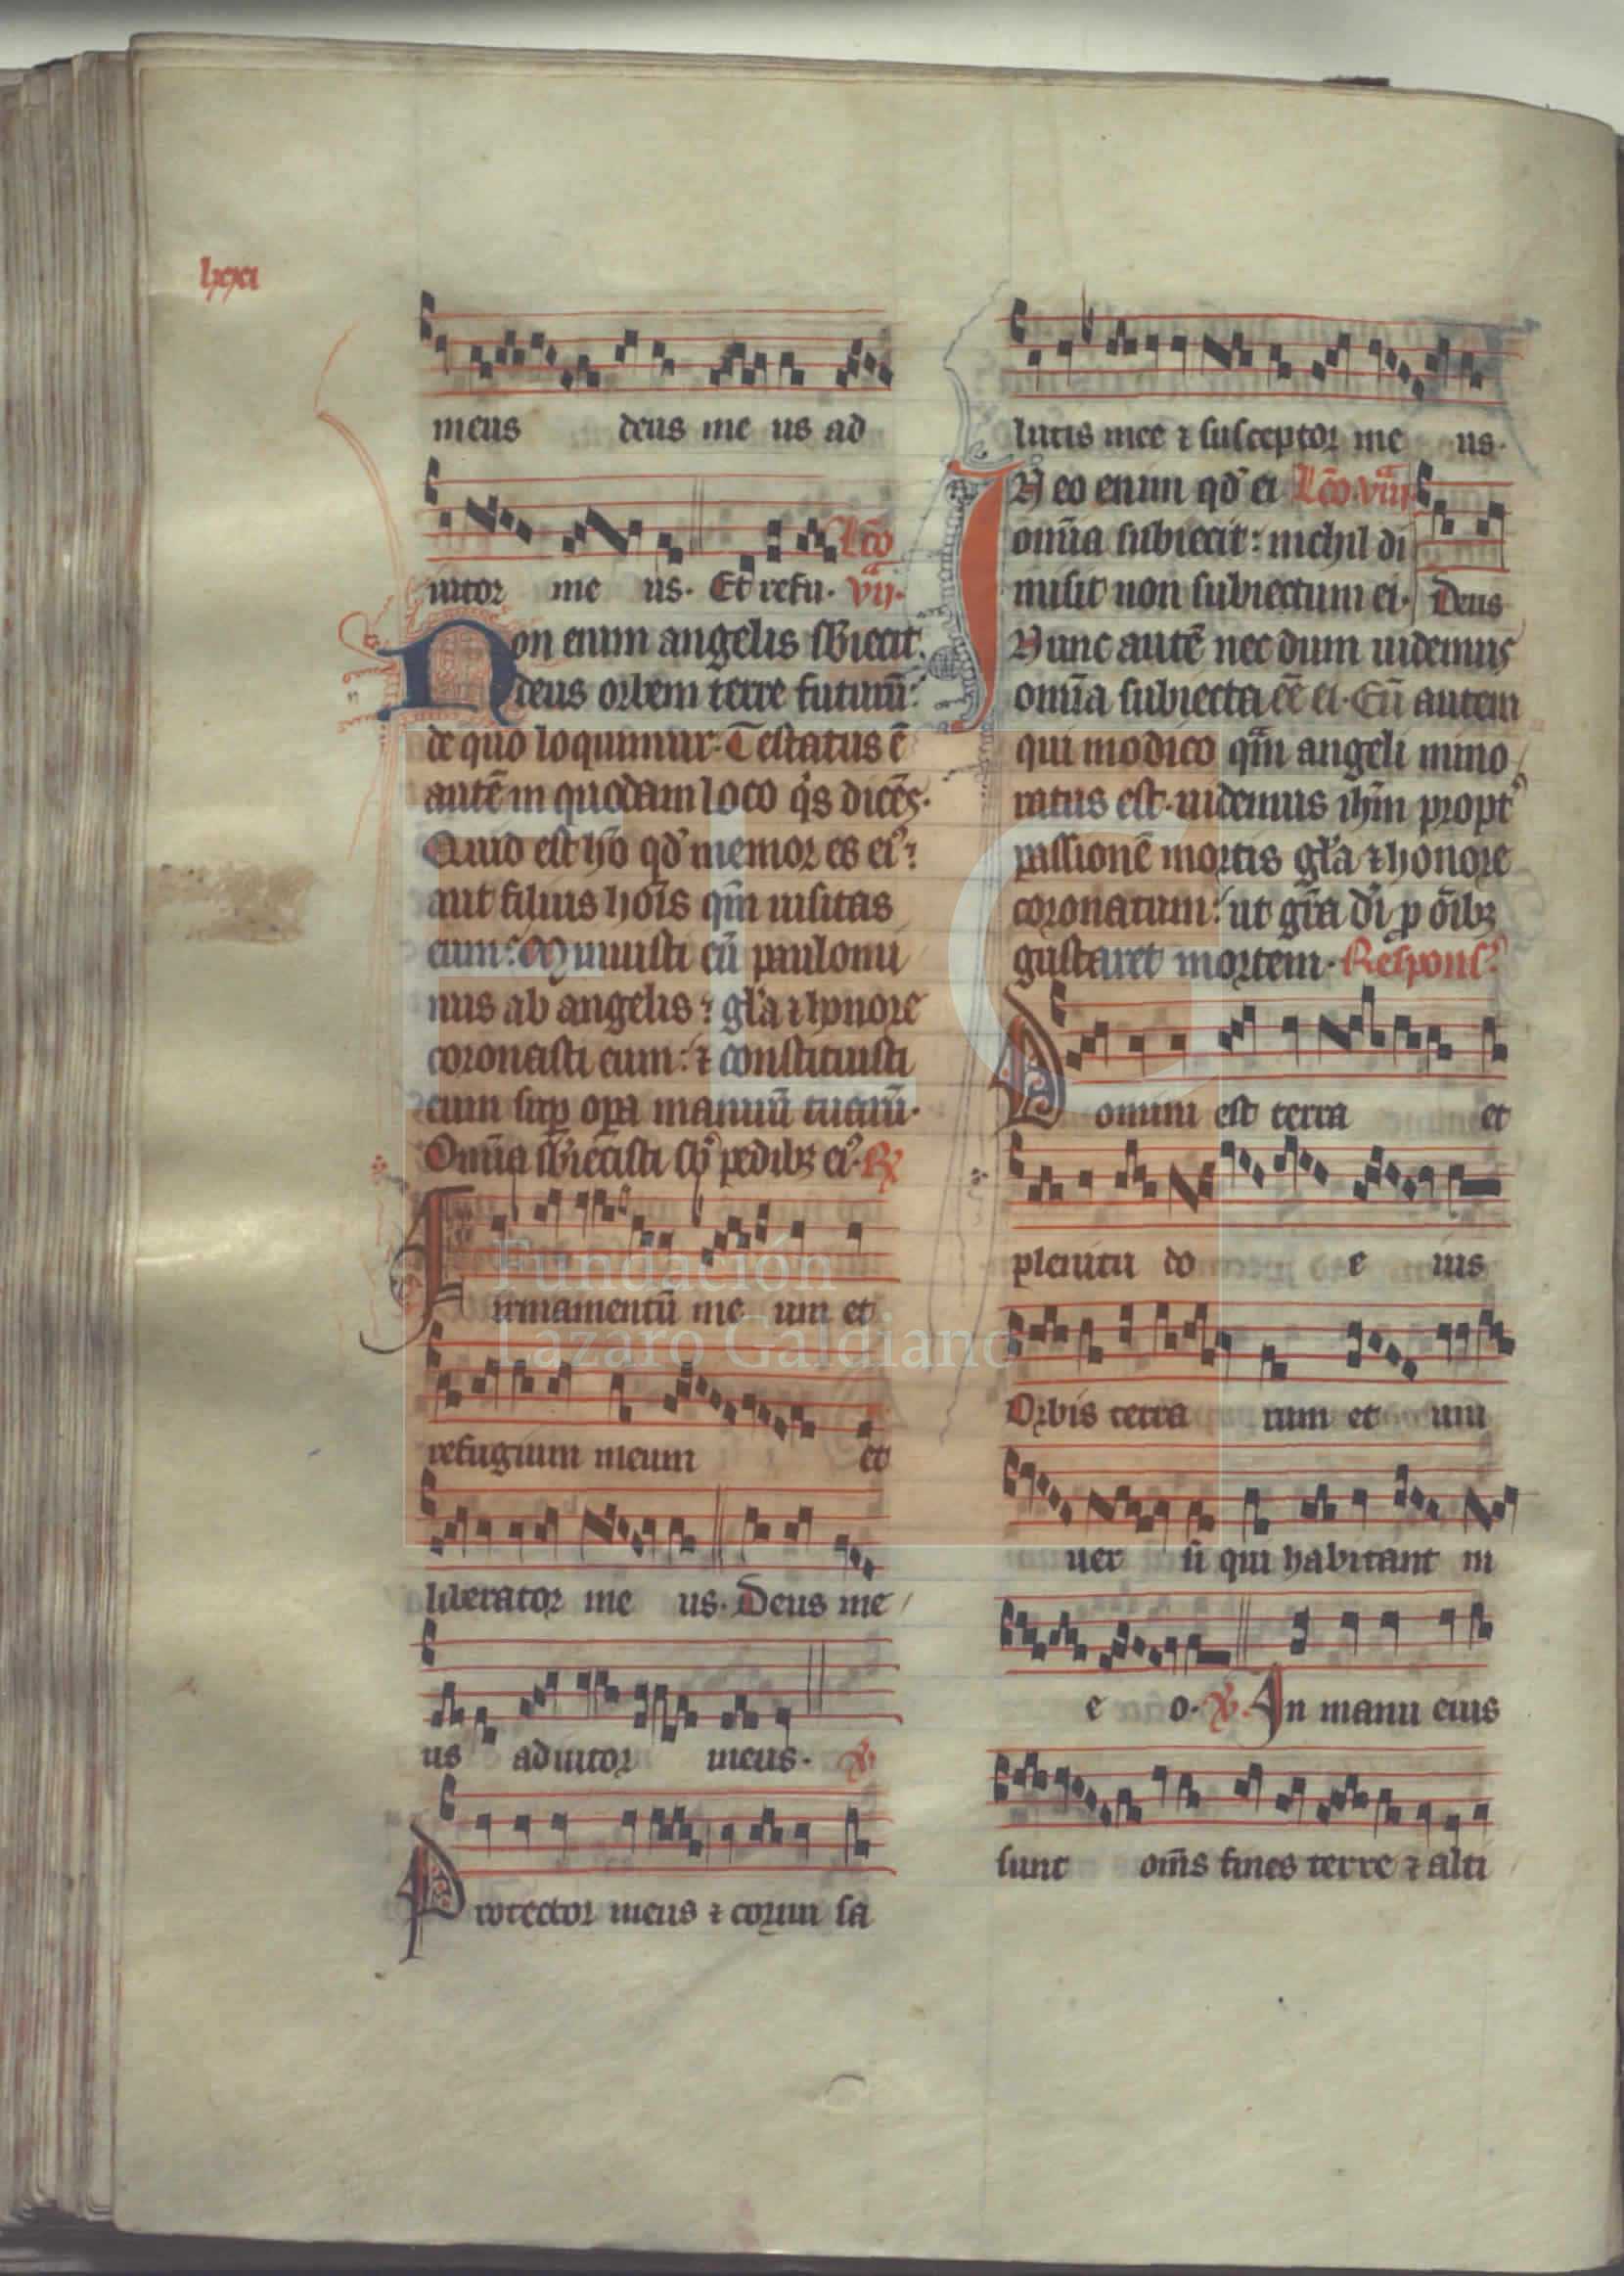 lxxi
meus deus me us ad
iutor me us. Et refu. vij.
Lc̄o
Non enim angelis sb̄iecit
deus orbem terre futurū:
de quo loquimur. Testatus ē
autē in quodam loco q̇s dicēs.
Quid est hō qd̓ memor es ei᷒:
aut filius hoīs qm̄ uisitas
eum: Minuisti eū paulomi
nus ab angelis: gl̓a ⁊ honore
coronasti eum: ⁊ constituisti
eum sup̱ oꝑa manuū tuaꝝ̄.
Om̄ia sb̄iecisti sb̓ pedibꝫ ei᷒. ℟
Firmamentū me um et
refugium meum et
liberator me us. Deus me
us adiutor meus. ℣.
Protector meus ⁊ cornu sa
lutis mee ⁊ susceptor me us.
IN eo enim qd̓ ei Lc̄o. viij
om̄ia subiecit: nichil di
misit non subiectum ei. Deus
Nunc autē nec dum uidemus
om̄ia subiecta eē ei. Eū autem
qui modico qm̄ angeli mino
ratus est. uidemus ihm̄ propt᷒
passionē mortis gl̓a ⁊ honore
coronatum: ut gr̄a di̓ ꝓ oībꝫ
gustaret mortem. Respons᷒
Domini est terra et
plenitu do e ius
Orbis terra rum et uni
uer si qui habitant in
e o. ℣. In manu eius
sunt om̄s fines terre ⁊ alti
Fundación
Lázaro Galdiano